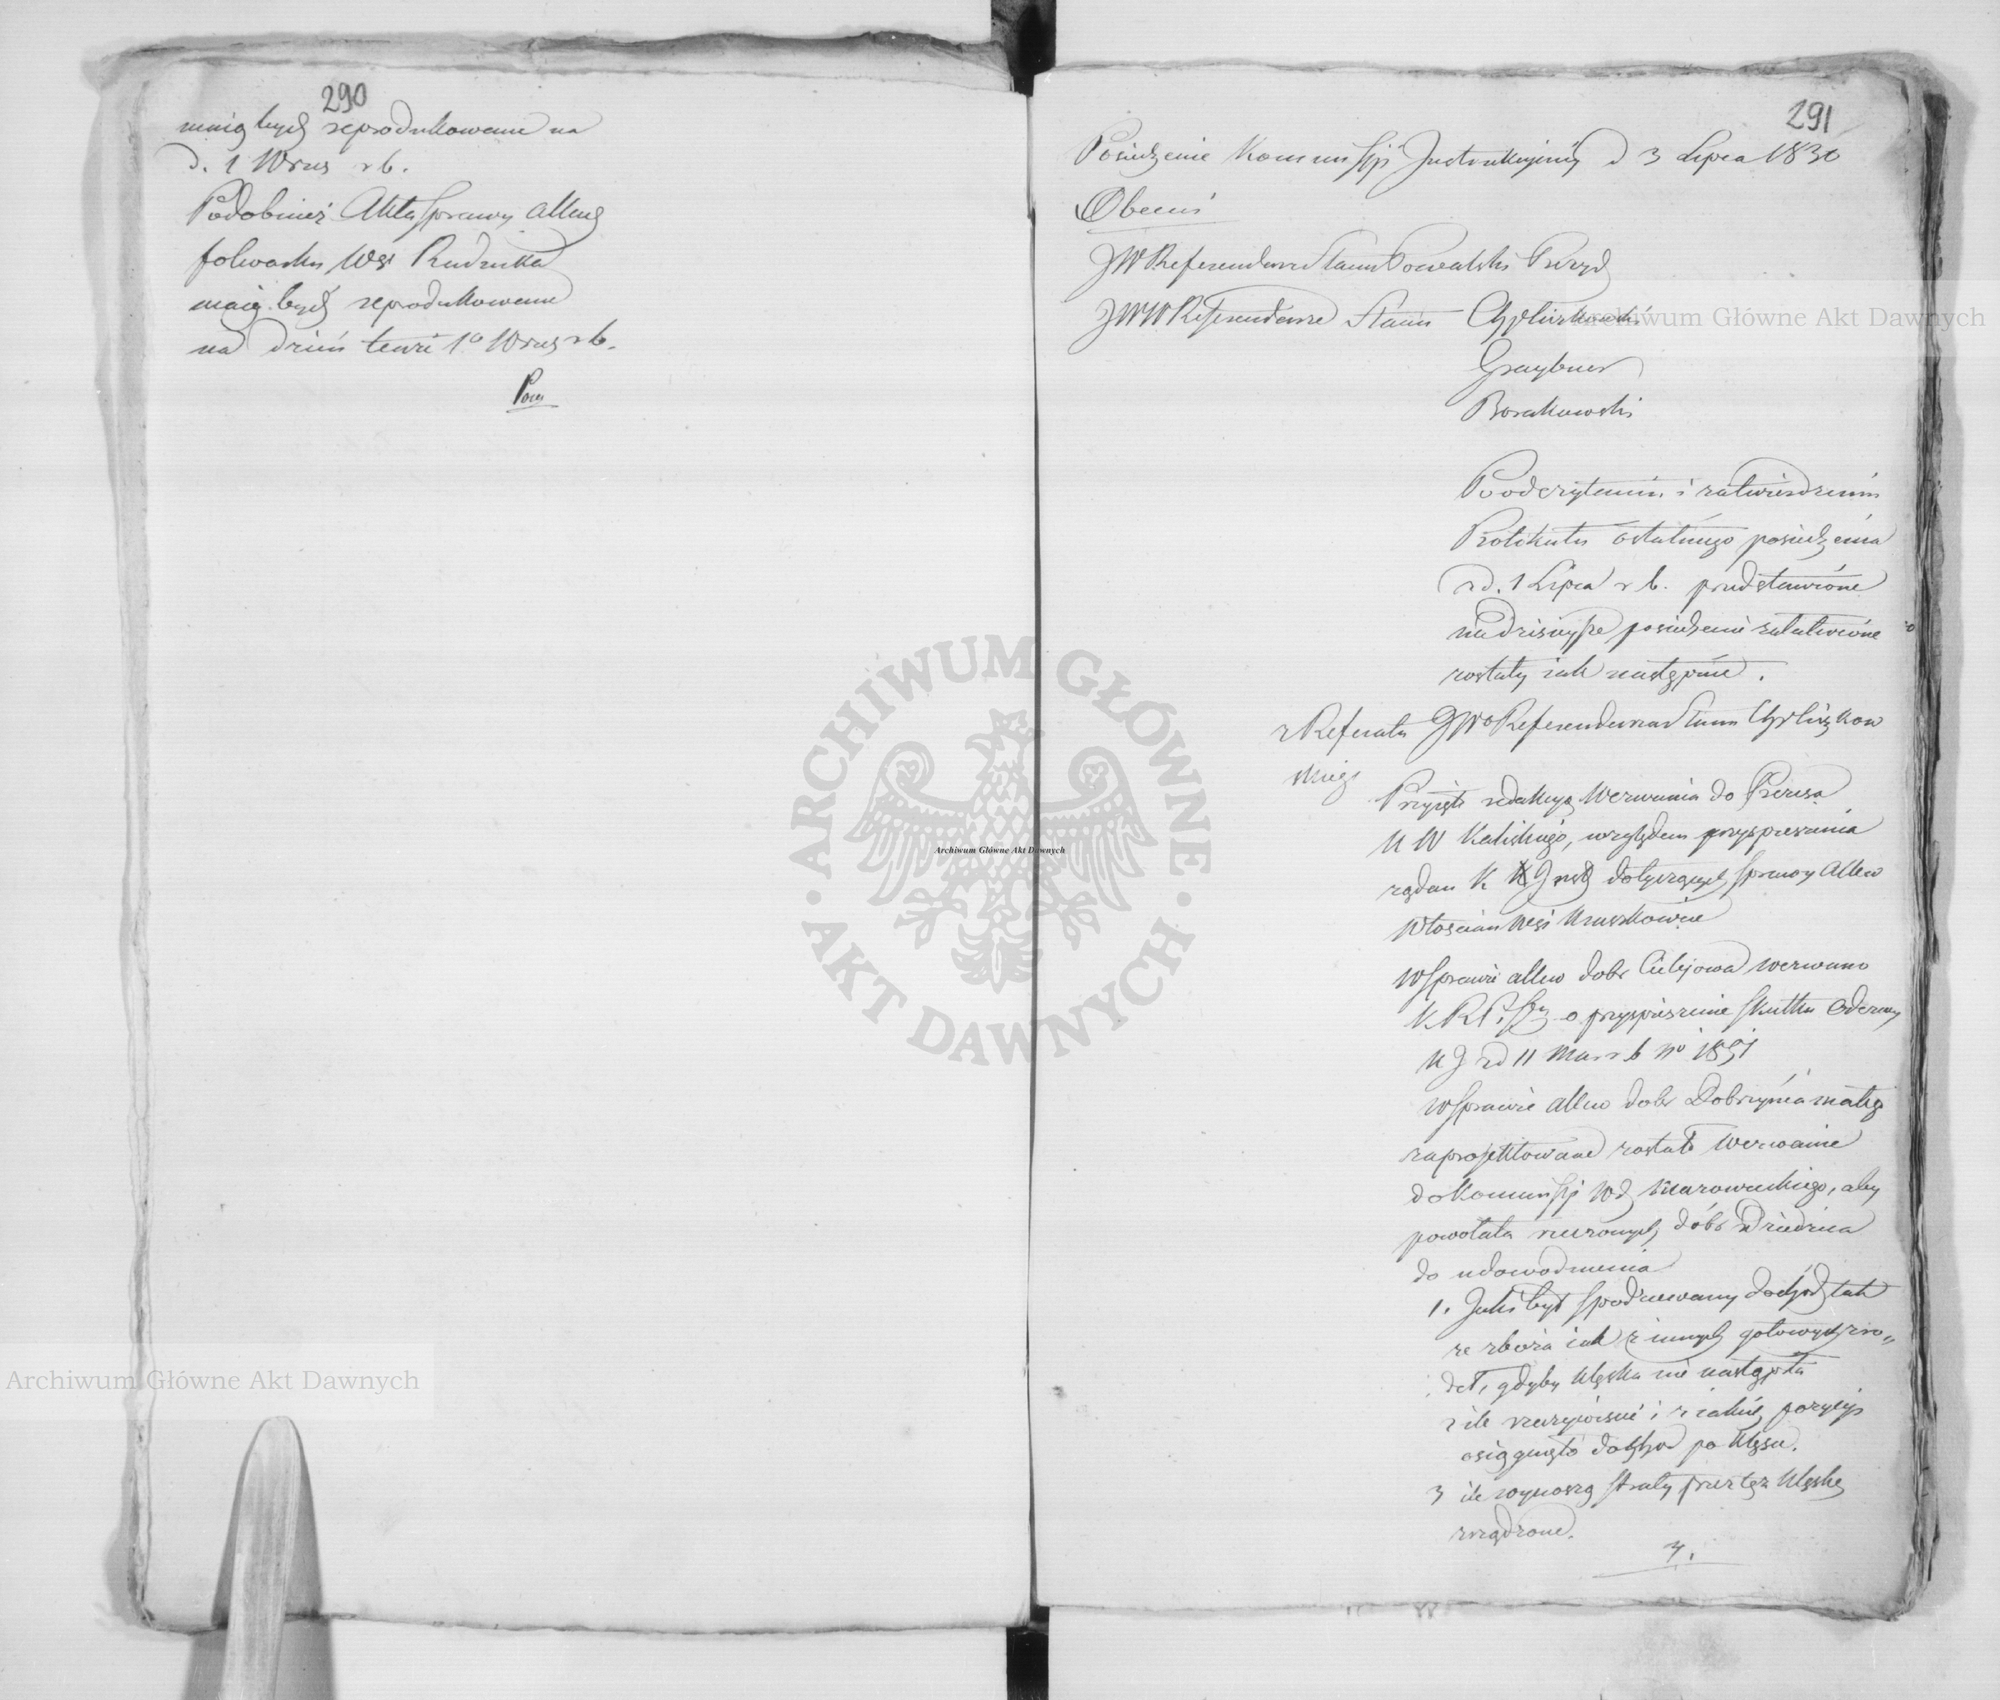 290
maią bydź reprodukowane na
d. 1 Wrześ r b.
Podobnież Akta sprawy allew
folwarku Wsi Rudnika
maią bydź reprodukowane
na dzień tenże 1º Wrześ r b.
291
Posiedzenie Kommissyi Instrukcyiney d 3 Lipca 1830
Obecni
JW Referendarz Stanu Prezyd
JWW Referendarze Stanu
Graybner
Borakowski
Po odczytaniu i zatwierdzeniu
Protokułu ostatniego posiedzenia
z d. 1 Lipca r b. przedstawione
na dzisieysze posiedzenie załatwione
zostały iak następuie.
z Referatu JWº Referendarza Stanu
skiego
Przyięto redakcyą wezwania do Prezesa
K W Kaliskiego, względem przyspieszenia
żądań K dotyczących sprawy allew
włościan wsi Kraszkowice
W sprawie allew dobr wezwano
K R P. o przyspieszenie skutku Odezwy
K J z d 11 Mar. r b Nº
W sprawie allew dobr Dobrzynia
zaproiektowane zostało wezwanie
do Kommissyi Wd Mazowieckiego, aby
powołała rzeczonych dóbr Dziedzica
do udowodnienia
1. Jaki był spodziewany dochód tak
ze zboża iak z innych gotowych źró„
deł, gdyby klęska nie nastąpiła
2 ile rzeczywiście i z iakiey pozycyi
osiągnięto dochod po klęsce.
3 ile wynoszą straty przez tęż klęskę
zrządzone.
Archiwum Główne Akt Dawnych
Archiwum Główne Akt Dawnych
Archiwum Główne Akt Dawnych
ARCHIWUM GŁÓWNE · AKT DAWNYCH ·